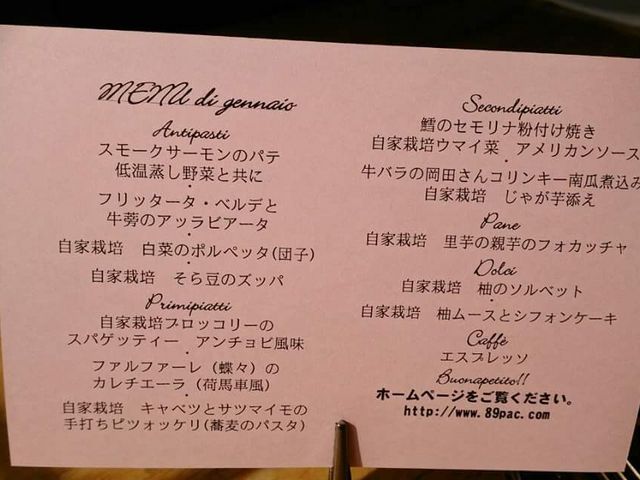 MENU di gennaio
Antipasti
スモークサーモンのパテ
低温蒸し野菜と共に
・
フリッタータ・ベルデと
牛蒡のアッラビアータ
・
自家栽培 白菜のポルペッタ(団子)
・
自家栽培 そら豆のズッパ
Primipiatti
自家栽培ブロッコリーの
スパゲッティー アンチョビ風味
・
ファルファーレ（蝶々）の
カレチエーラ（荷馬車風）
・
自家栽培 キャベツとサツマイモの
手打ちピツォッケリ(蕎麦のパスタ)
Secondipiatti
鱈のセモリナ粉付け焼き
自家栽培ウマイ菜 アメリカンソース
・
牛バラの岡田さんコリンキー南瓜煮込み
自家栽培 じゃが芋添え
Pane
自家栽培 里芋の親芋のフォカッチャ
Dolci
自家栽培 柚のソルベット
・
自家栽培 柚ムースとシフォンケーキ
Caffè
エスプレッソ
Buonapetito!!
ホームページをご覧ください。
http://www.89pac.com